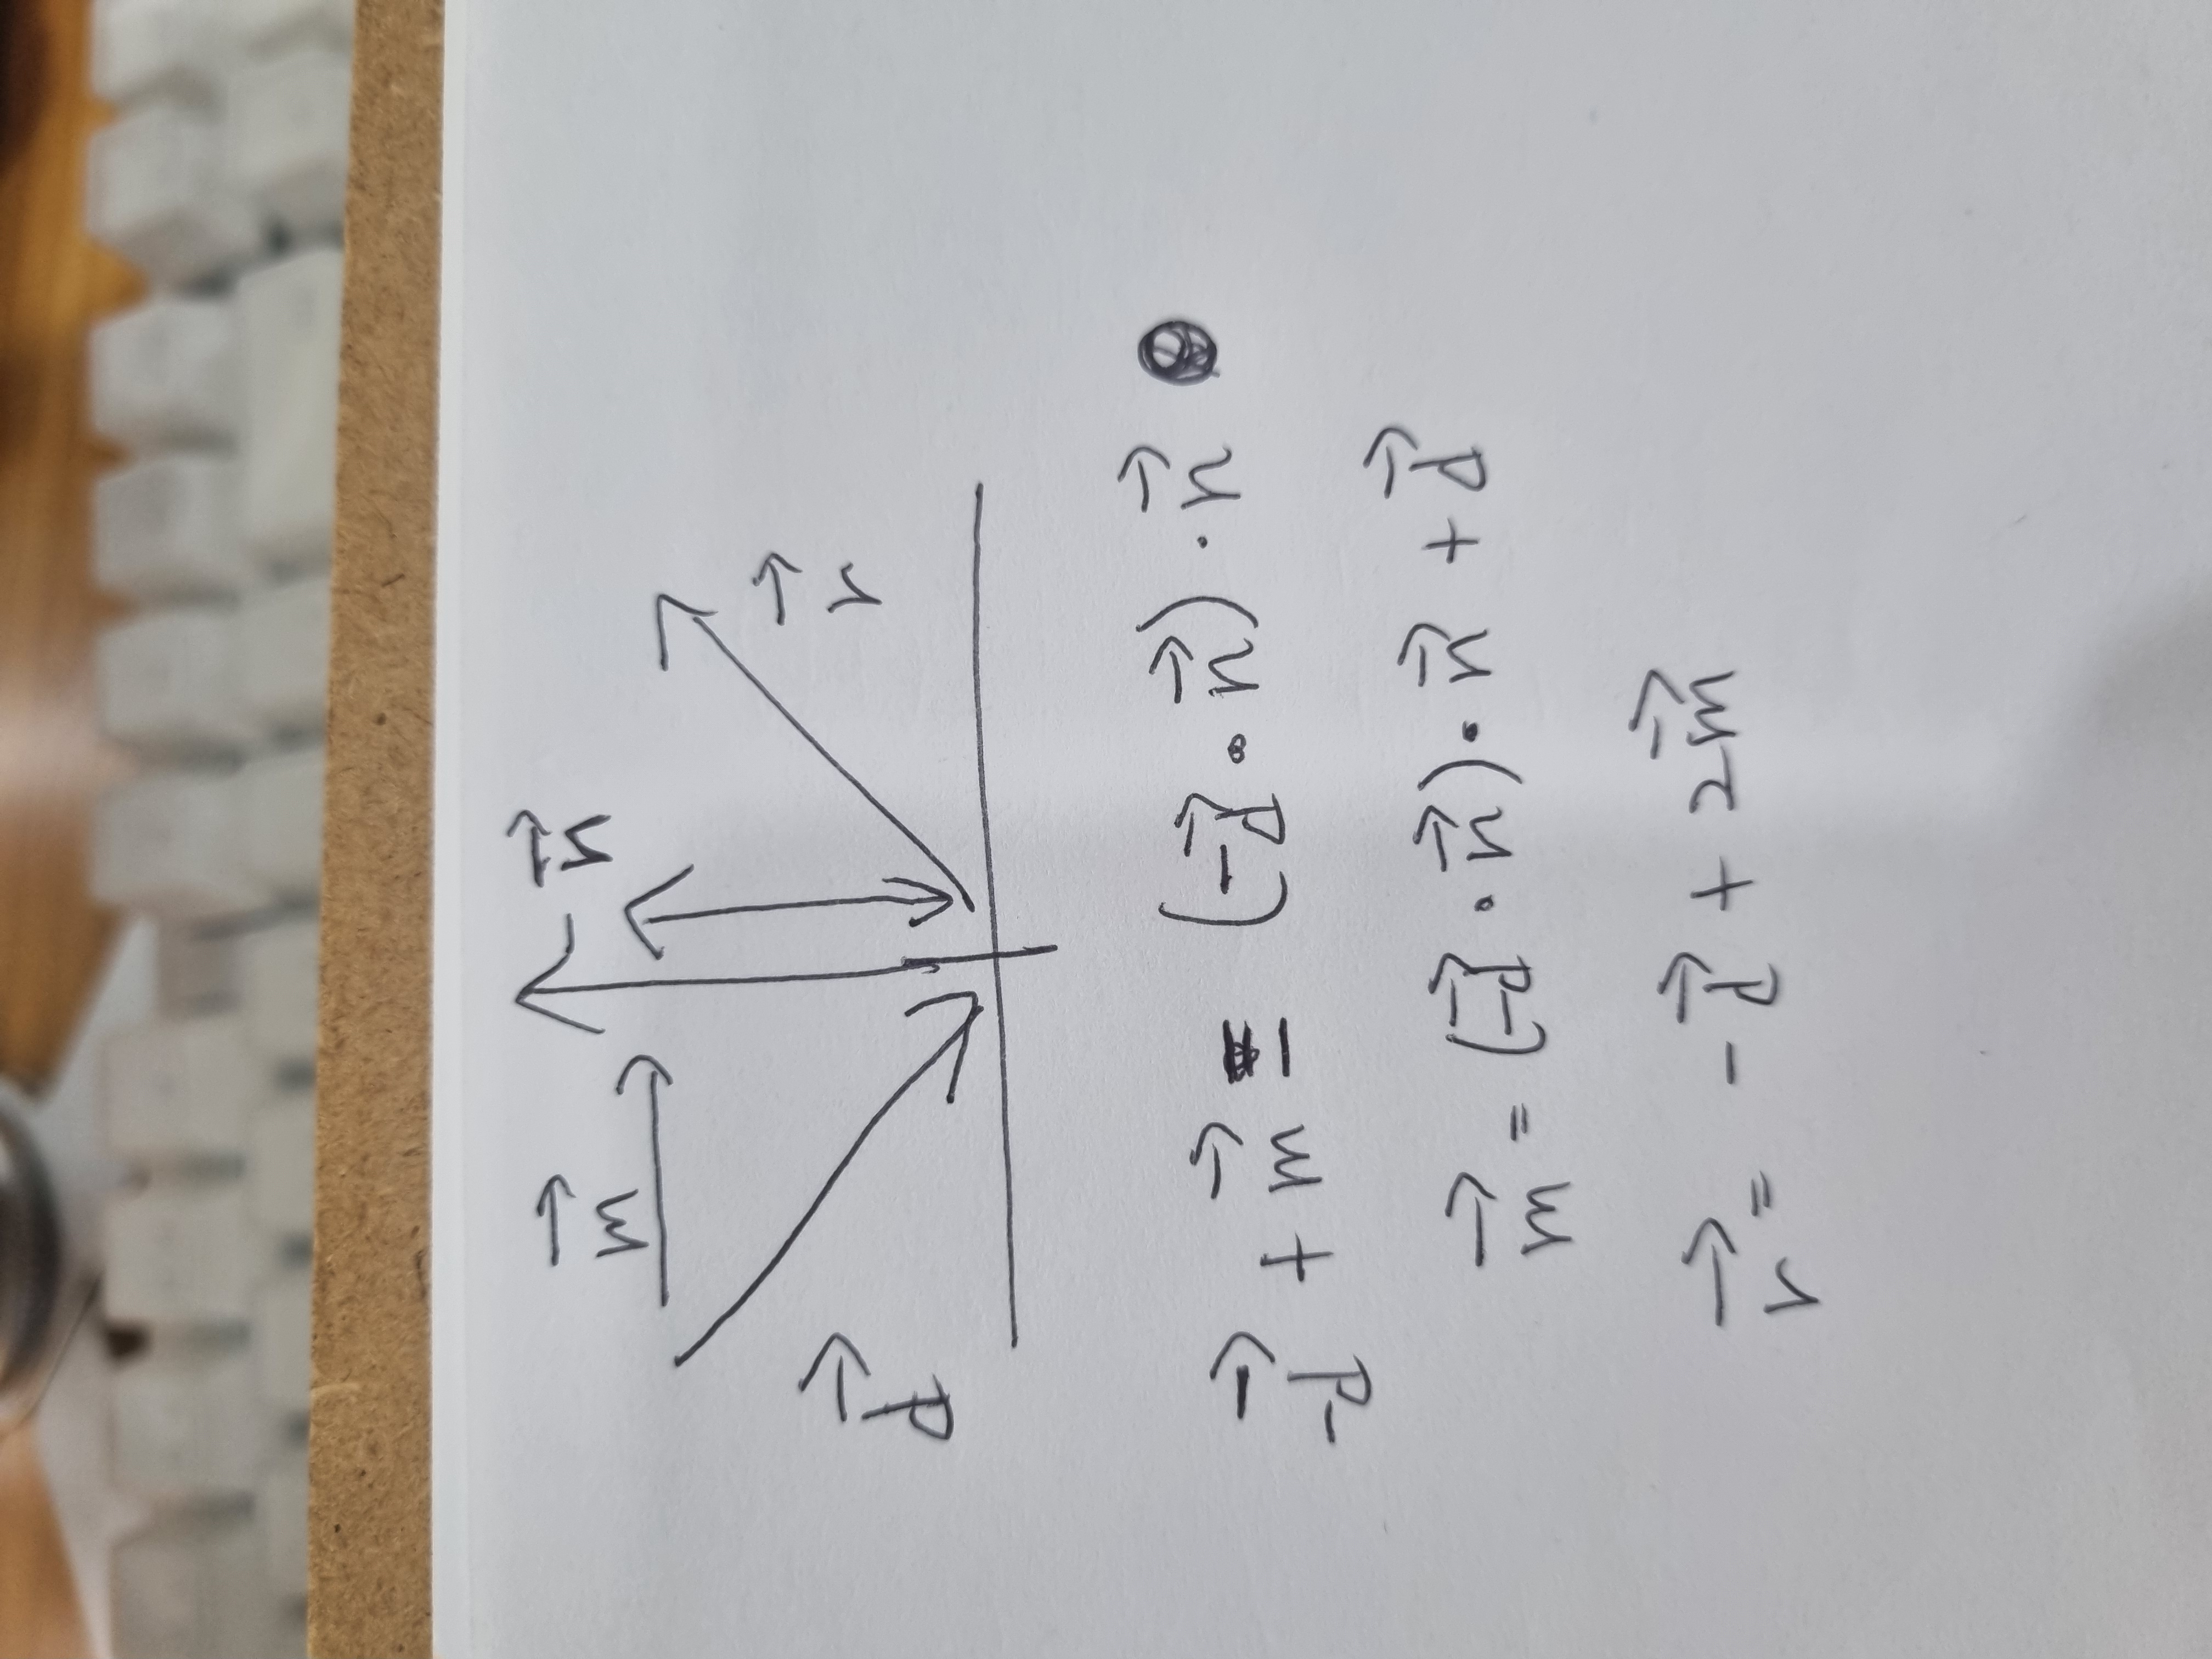 $\vec{m}$ $\vec{n}$
$\vec{d}$ $\vec{r}$
$\vec{-d} + \vec{m} = (-\vec{d} \cdot \vec{n}) \cdot \vec{n}$
$\vec{m} = (\vec{-d} \cdot \vec{n}) \cdot \vec{n} + \vec{d}$
$\vec{r} = -\vec{d} + 2\vec{m}$